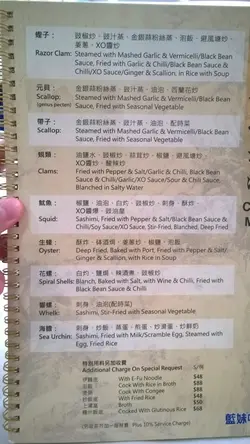 蟶子: 豉椒炒、豉汁蒸、金銀蒜粉絲蒸、泡飯、避風塘炒、
薑蔥、XO醬炒
Razor Clam: Steamed with Mashed Garlic & Vermicelli/Black Bean
Sauce, Fried with Garlic & Chilli/Black Bean Sauce &
Chilli/XO Sauce/Ginger & Scallion. in Rice with Soup
元貝: 金銀蒜粉絲蒸、豉汁蒸、油泡、西蘭花炒
Scallop: Steamed with Mashed Garlic & Vermicelli/Black Bean
(genius pecten) Sauce, Fried with Seasonal Vegetable
帶子: 金銀蒜粉絲蒸、豉汁蒸、油泡、配時菜
Scallop: Steamed with Mashed Garlic & Vermicelli/Black Bean
Sauce, Fried with Seasonal Vegetable
蜆類: 油鹽水、豉椒炒、蒜茸炒、椒鹽、避風塘炒、
XO醬炒、
Clams: Fried with Pepper & Salt/Garlic & Chilli, Black Bean
& Chilli/Garlic/XO Sauce/Sour & Chili Sauce
Blanched in Salty Water
魷魚: 椒鹽、油泡、白灼、豉椒炒、刺身、酥炒、
XO醬爆、豉油皇
Squid: Sashimi, Fried with Pepper & Salt/Black Bean Sauce &
Chilli/Soy Sauce/XO Sauce, Stir-Fried, Blanched, Deep Fried
生蠔: 酥炸、砵酒焗、薑蔥炒、椒鹽、泡飯
Oyster: Deep Fried, Baked with Port, Fried with Pepper & Salt/
Ginger & Scallion, with Rice in Soup
花螺: 白灼、鹽焗、辣酒煮、豉椒炒
Spiral Shells: Blanch, Baked with Salt, with Wine & Chilli, Fried with
Black Bean Sauce & Chilli
響螺: 刺身、油泡(配時菜)
Whelk: Sashimi, Stir-Fried with Seasonal Vegetable
海膽: 刺身、炒飯、蒸蛋、煎蛋、炒滑蛋、炒鮮奶
Sea Urchin: Sashimi, Fried with Milk/Scramble Egg, Steamed with
Egg, Fried Rice
特別用料另加收費
Additional Charge On Special Request
伊麵底 With E-Fu Noodle $48
泡飯 Cook With Rice in Broth $88
煲粥 Cook With Congee $88
炒飯 With Fried Rice $48
上湯 Broth $50
糯米飯 Cooked With Glutinous Rice $68
Plus 10% Service Charge)